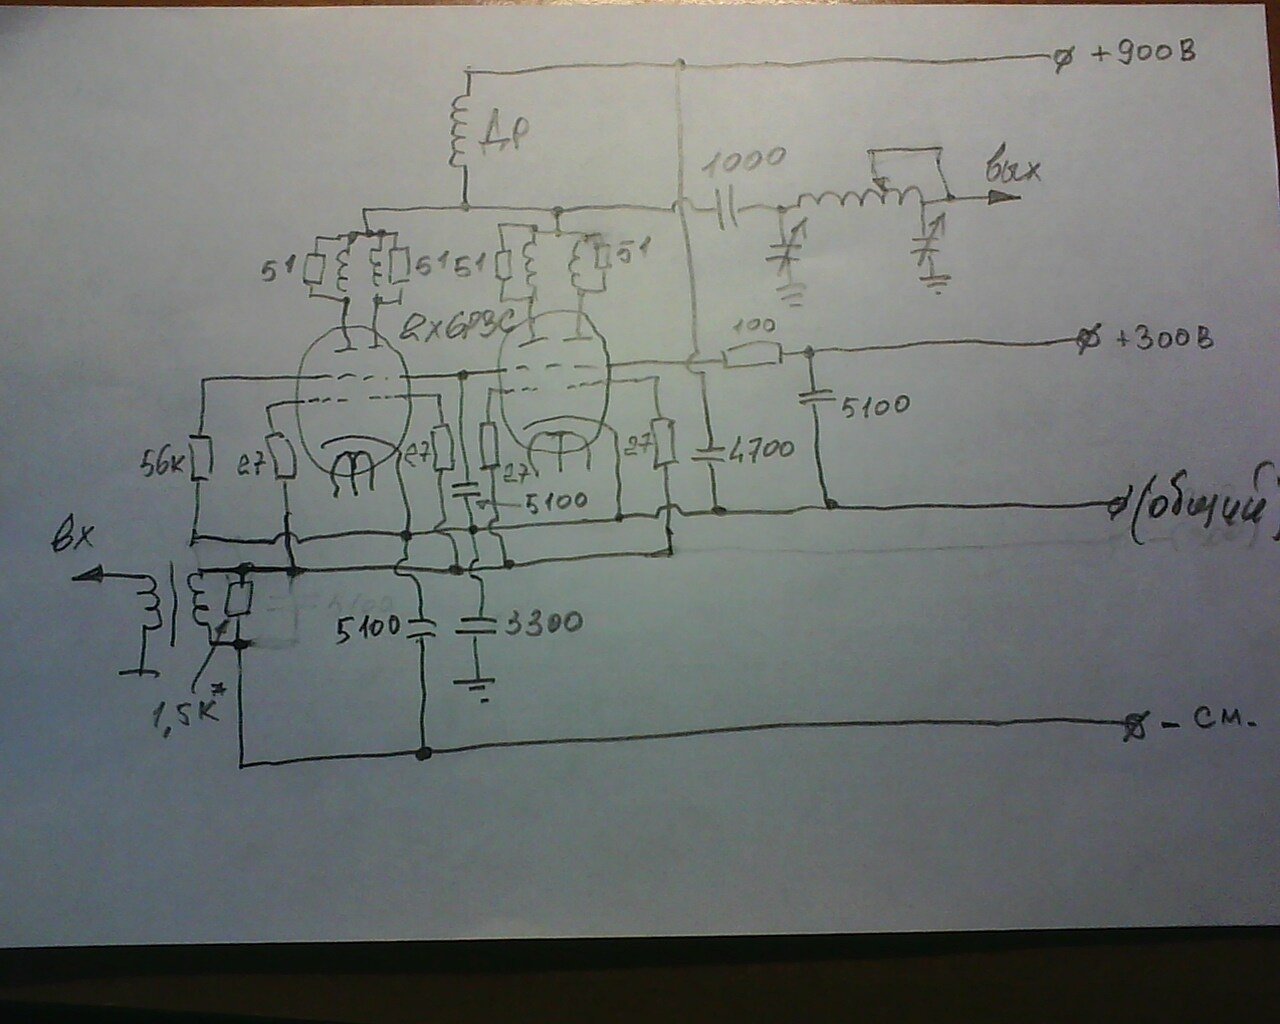 +900В
Др
1000
вых
51
51
51
51
2х6Р3С
100
+300В
5100
56к
27
27
27
27
4700
5100
(общий)
вх
5100
3300
1,5к*
- см.